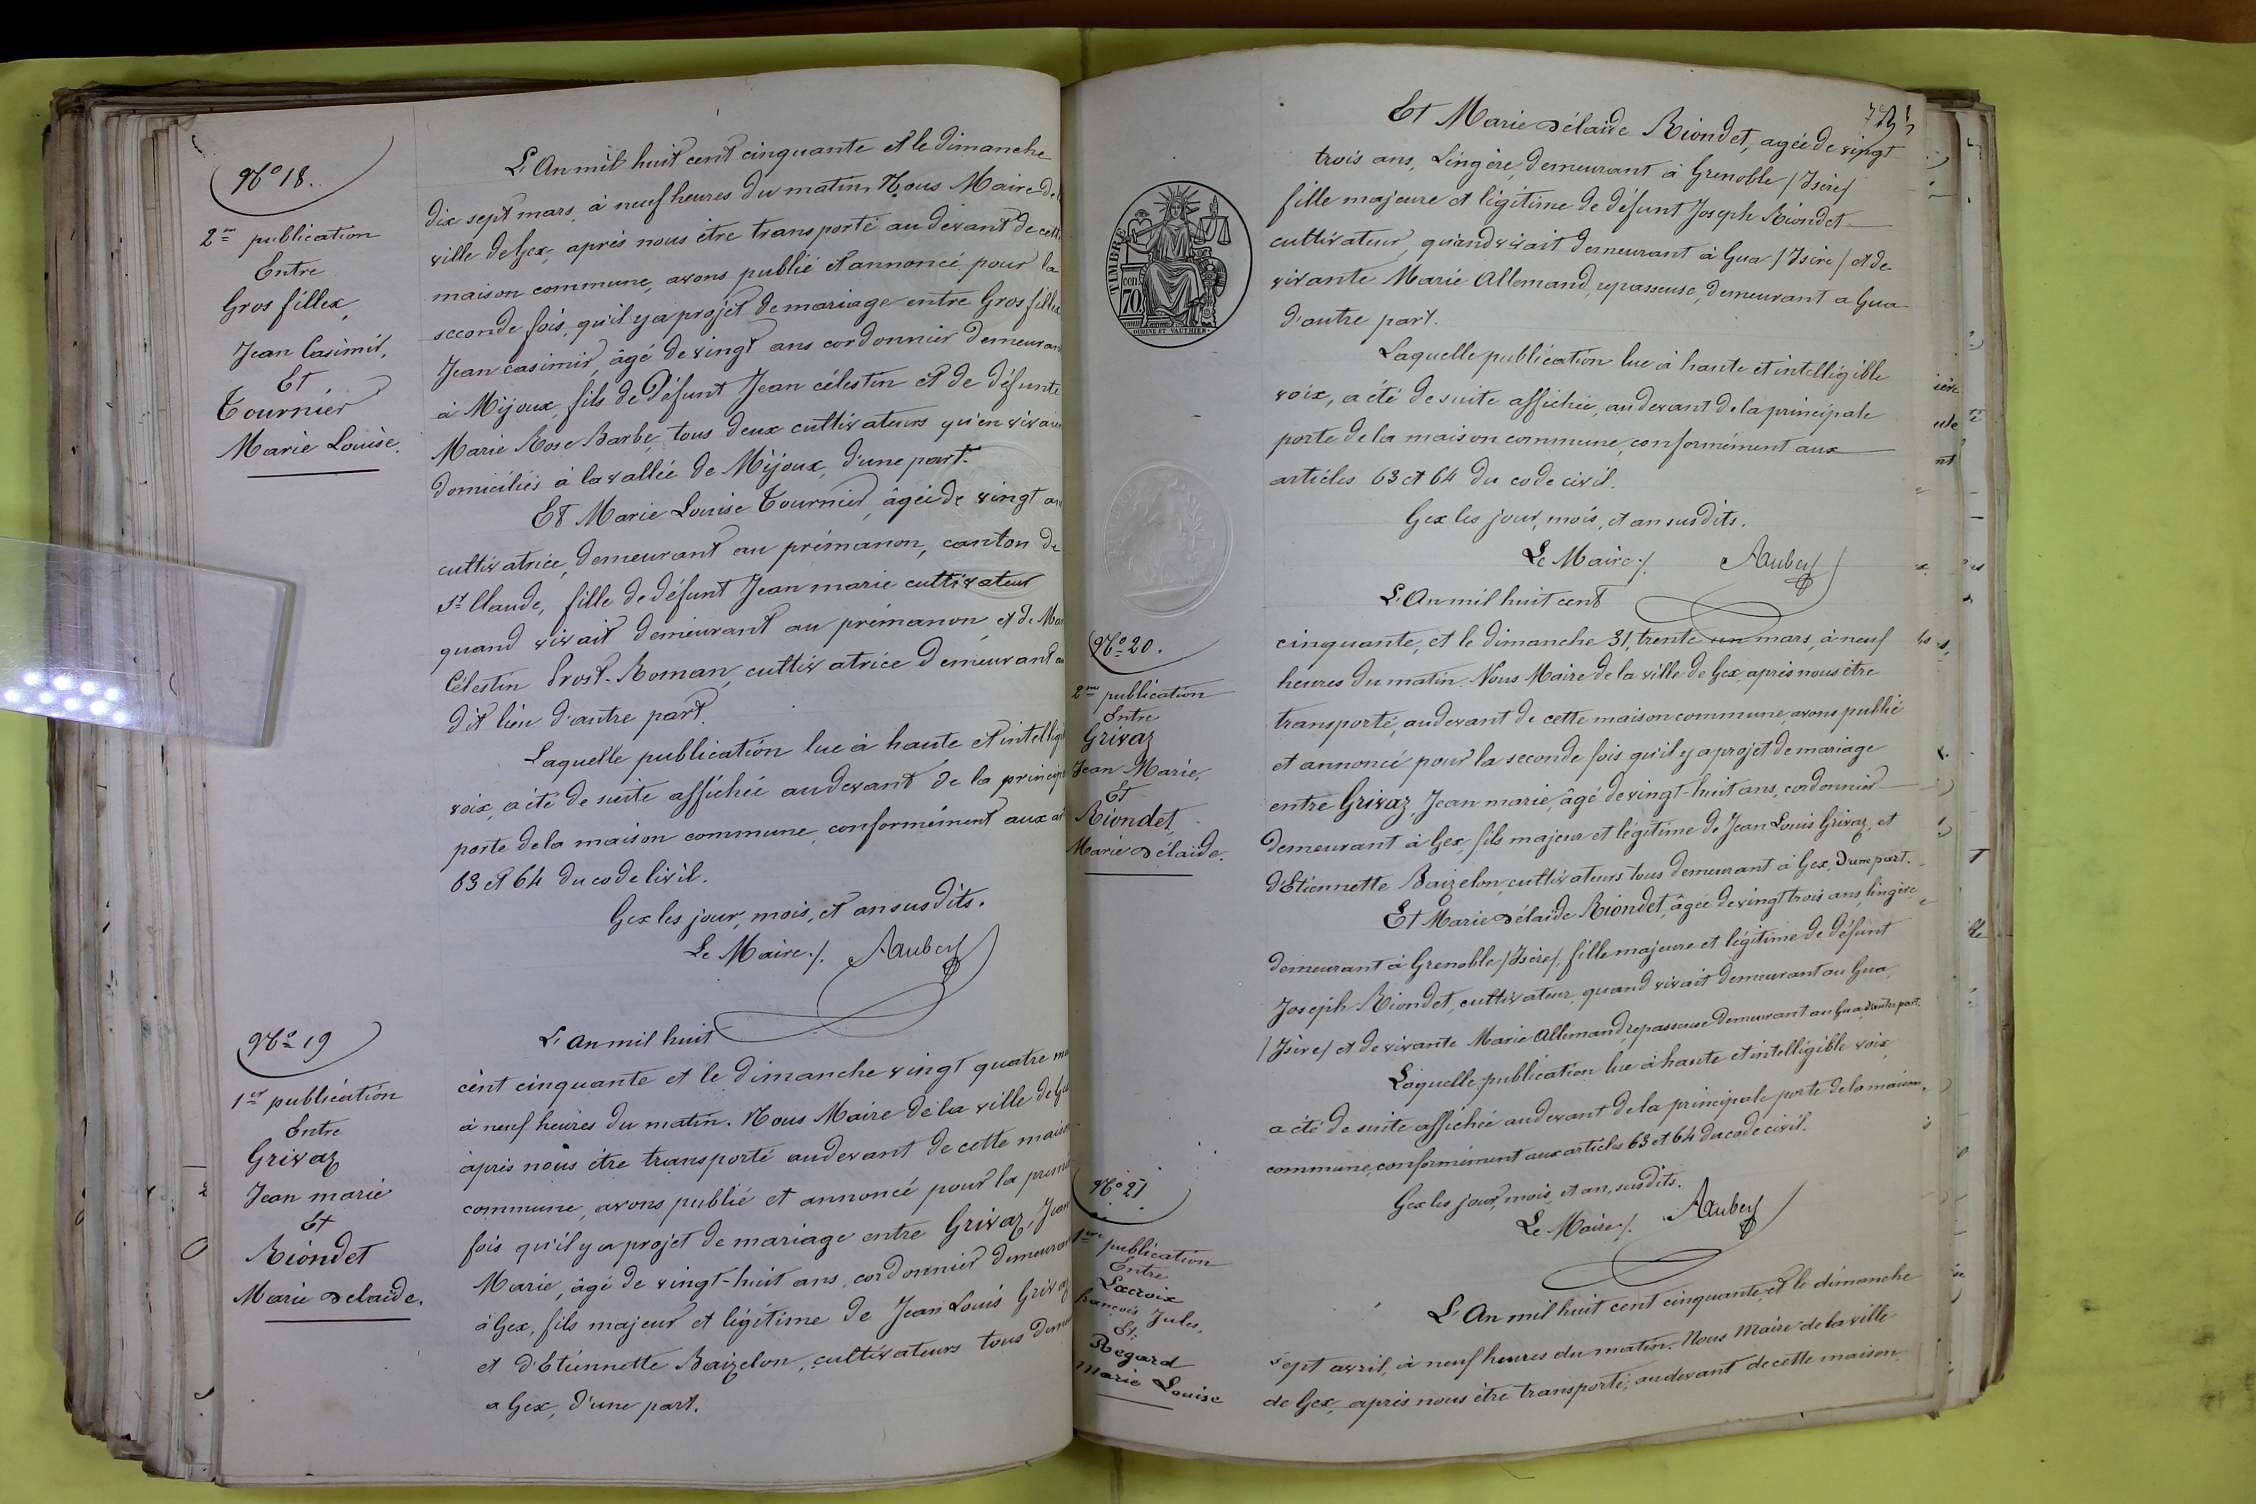 No 18.
2me publication
Entre
Gros fillex,
Jean Casimir,
Et
Tournier
Marie Louise.
L'An mil huit cent cinquante et le dimanche
dix sept mars, à neuf heures du matin, Nous Maire de
ville de Gex, après nous être transporté au devant de cette
maison commune, avons publié et annoncé pour la
seconde fois, qu'il y a projet de mariage entre Gros fillex
Jean casimir, âgé de vingt ans cordonnier demeurant
à Mijoux, fils de Défunt Jean célestin et de défunte
Marie Rose Barbe, tous deux cultivateurs qu'en vivaient
domiciliés à la vallée de Mijoux, d'une part.
Et Marie Louise Tournier, âgée de vingt ans
cultivatrice, demeurant au prémanon, canton de
St Claude, fille de défunt Jean marie cultivateur
quand vivait demeurant au prémanon, et de
Célestin Prost-Roman, cultivatrice demeurant au
dit lieu d'autre part.
Laquelle publication lue à haute et intelligible
voix, a été de suite affichée au devant de la principale
porte de la maison commune, conformément aux
63 et 64 du code Civil.
Gex les jour, mois, et an susdits.
Le Maire /. Aubert
No 19
1er publication
Entre
Grivaz
Jean marie
Et
Riondet
Marie Délaide.
L'An mil huit
cent cinquante et le dimanche vingt quatre mars
à neuf heures du matin. Nous Maire de la ville de Gex
après nous être transporté au devant de cette maison
commune, avons publié et annoncé pour la première
fois qu'il y a projet de mariage entre Grivaz, Jean
Marie, âgé de vingt-huit ans, cordonnier demeurant
à Gex, fils majeur et légitime de Jean Louis Grivaz
et d'Etiennette Baizelon, cultivateurs tous demeurant
a Gex, d'une part.
Et Marie Délaide Riondet, agée de vingt
trois ans, Lingère, demeurant à Grenoble /Isère/
fille majeure et légitime de défunt Joseph Riondet
cultivateur, quand vivait demeurant à Gua /Isère/ et de
vivante Marie Allemand, repasseuse, demeurant a Gua
d'autre part.
TIMBRE
cen.
70
OUDINE ET VAUTHIER
Laquelle publication lue à haute et intelligible
voix, a été de suite affichée, au devant de la principale
porte de la maison commune, conformément aux
articles 63 et 64 du code civil.
Gex les jour, mois, et an susdits.
Le Maire /. Aubert
No 20.
2me publication
Entre
Grivaz
Jean Marie,
Et
Riondet,
Marie Délaide.
L'An mil huit cent
cinquante, et le dimanche 31, trente un mars, à neuf
heures du matin. Nous Maire de la ville de Gex, après nous être
transporté, au devant de cette maison commune, avons publié
et annoncé pour la seconde fois qu'il y a projet de mariage
entre Grivaz, Jean marie, âgé de vingt-huit ans, cordonnier
demeurant à Gex, fils majeur et légitime de Jean Louis Grivaz, et
d'Etiennette Baizelon, cultivateurs tous demeurant à Gex, D'une part.
Et Marie Délaide Riondet, agée de vingt trois ans, lingère,
demeurant à Grenoble /Isère/, fille majeure et légitime de défunt
Joseph Riondet, cultivateur, quand vivait demeurant au Gua,
/Isère/ et de vivante Marie Allemand, repasseuse demeurant au Gua, d'autre part.
Laquelle publication lue à haute et intelligible voix
a été de suite affichée au devant de la principale porte de la maison
commune, conformément aux articles 63 et 64 du code civil.
Gex les jour, mois, et an, susdits.
Le Maire /. Aubert
No 21
1ère publication
Entre
Lacroix
françois Jules,
Et
Regard
Marie Louise
L'An mil huit cent cinquante, et le dimanche
sept avril, à neuf heures du matin. Nous Maire de la ville
de Gex, après nous être transporté, au devant de cette maison